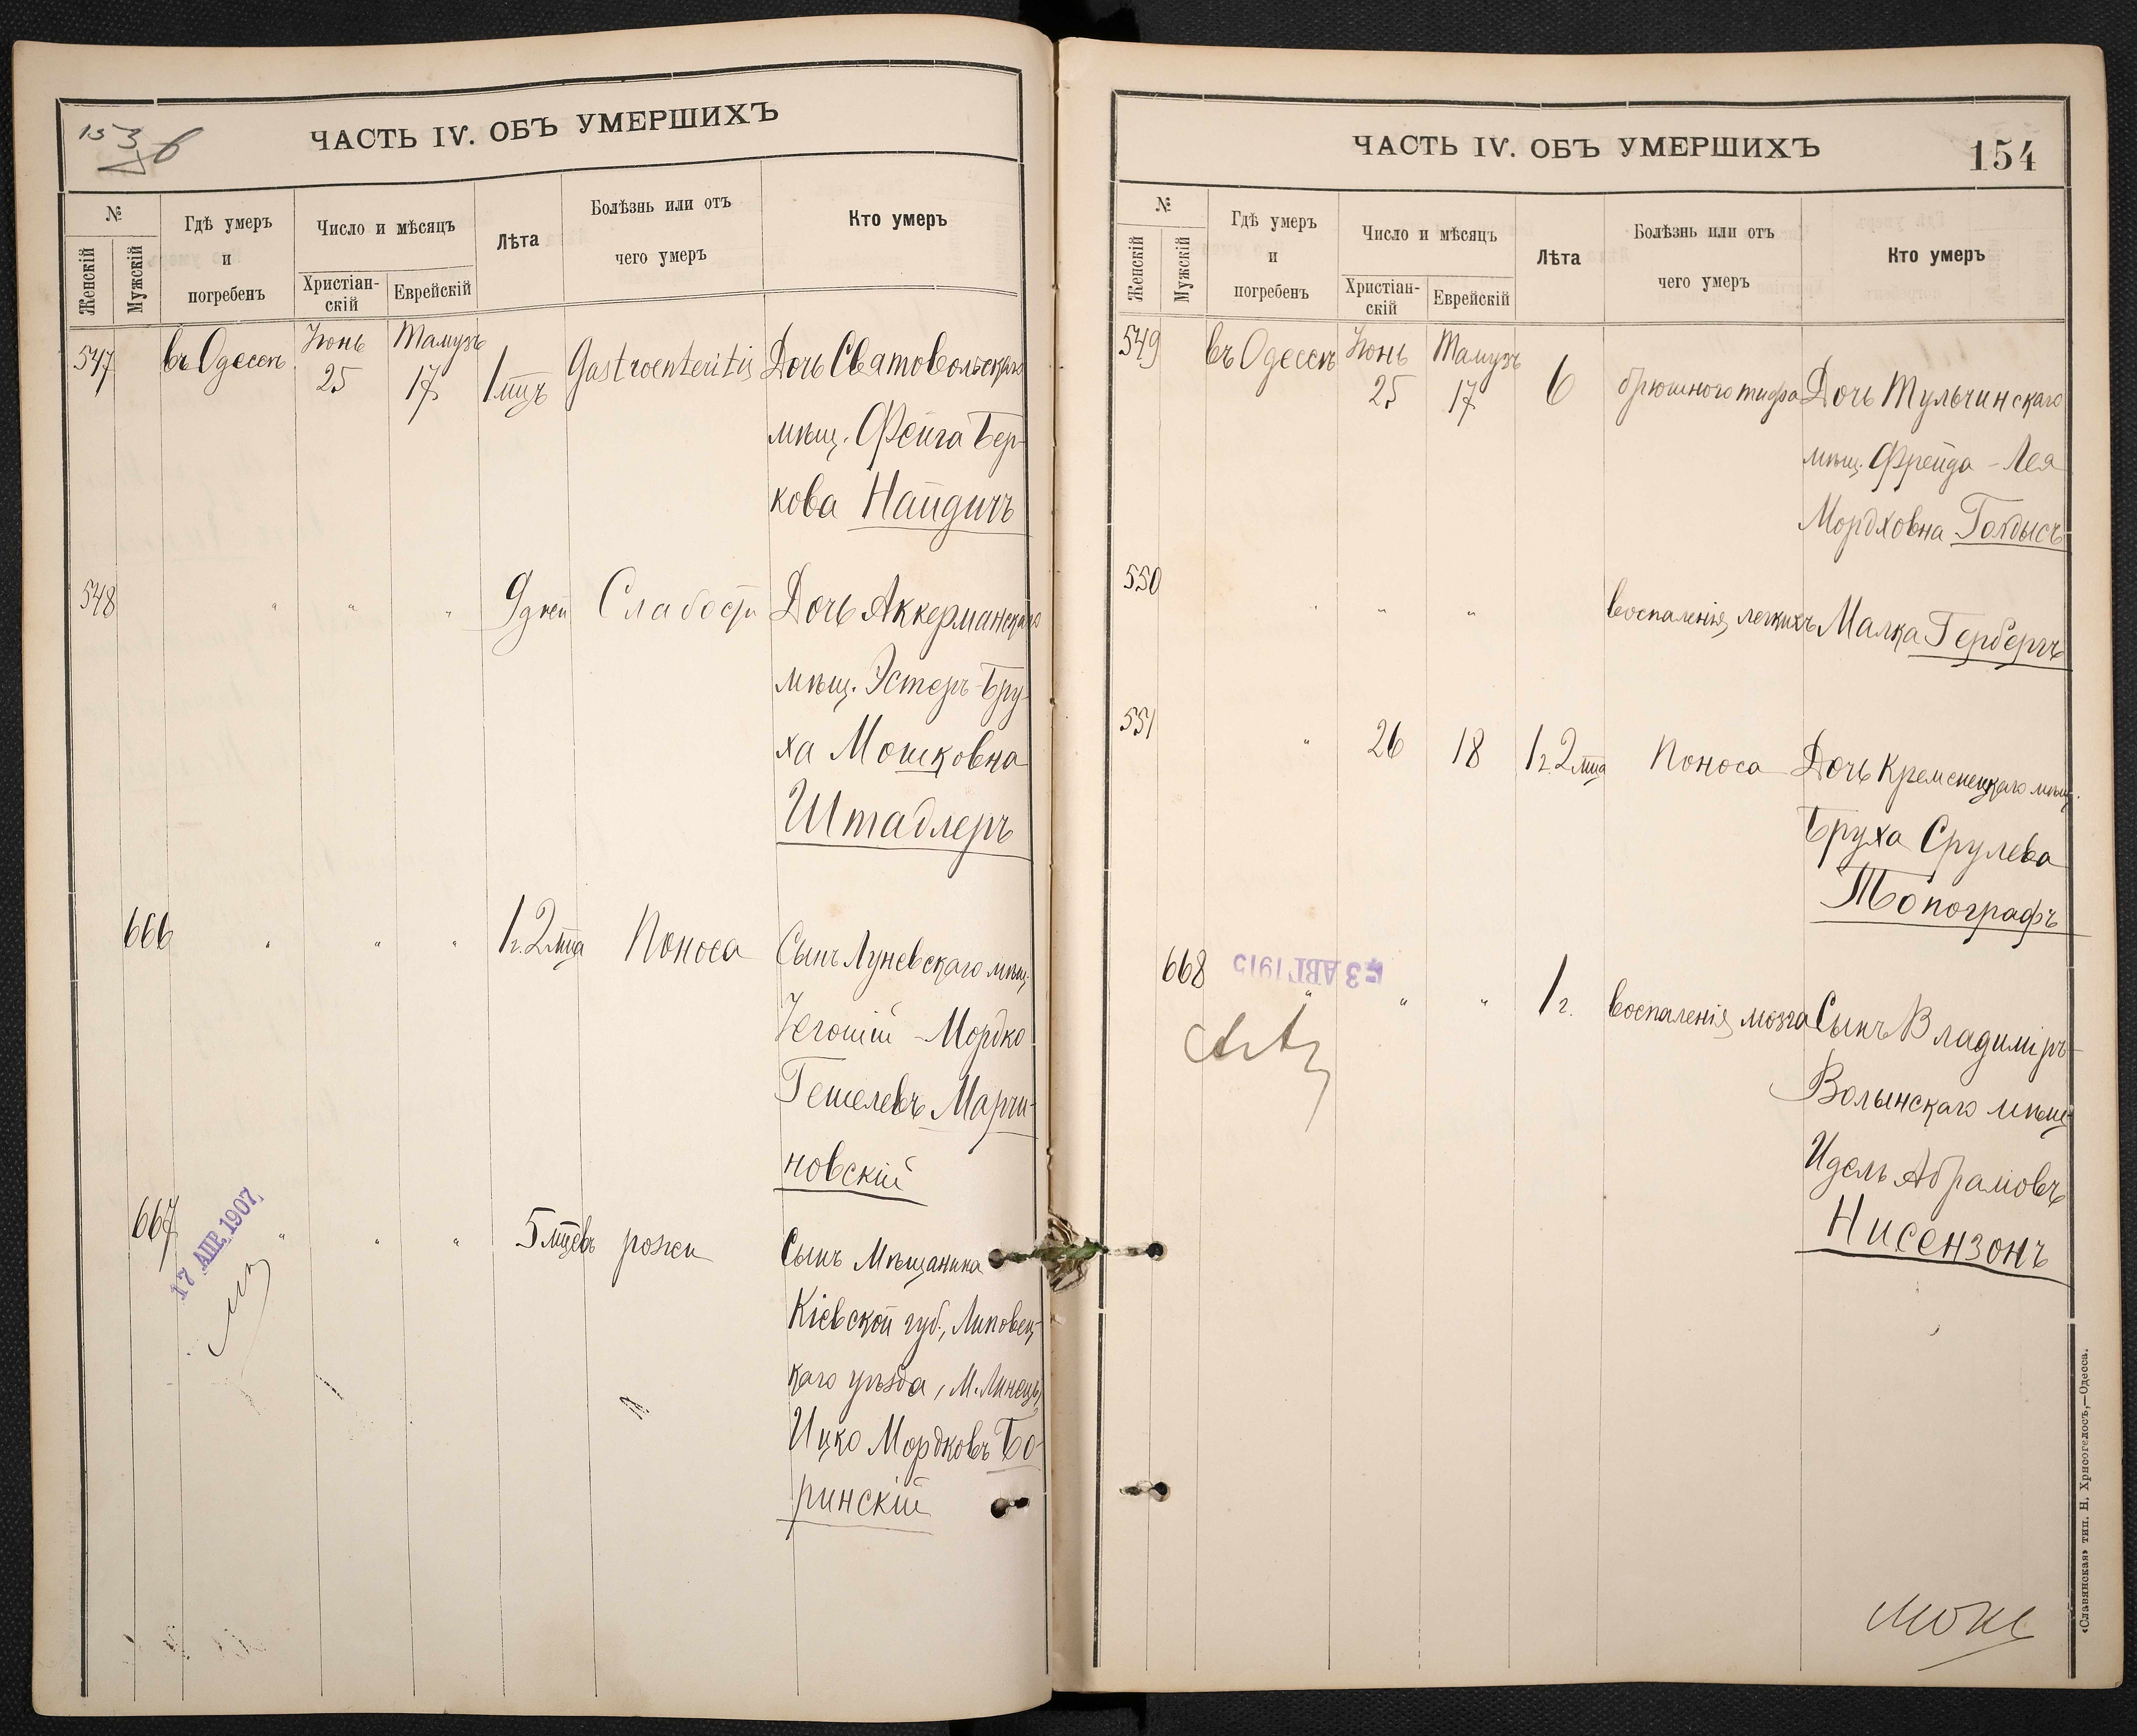 153
ЧАСТЬ IV. ОБЪ УМЕРШИХЪ
№
Женскій
Мужскій
Гдѣ умеръ
и
погребенъ
Число и мѣсяцъ
Христіан-
скій
Еврейскій
Лѣта
Болѣзнь или отъ
чего умеръ
Кто умеръ
547 въ Одессѣ Іюнь 25 Тамузъ 17 1 мцъ Gastroenteritis Дочь Святовольскаго
мѣщ. Фейга Бер-
кова Найдичъ
548 " " " 9 дней Слабости Дочь Аккерманскаго
мѣщ. Эстеръ-Бру-
ха Мошковна
Штадлеръ
666 " " " 1 г. 2 мца Поноса Сынъ Луневскаго мѣщ.
Іегошій-Мордко
Гешелевъ Марчи-
новскій
667 " " " 5 мцевъ рожи Сынъ Мѣщанина
17 АПР. 1907
Кіевской губ., Липовец-
каго уѣзда, М. Линецъ,
Ицко Мордковъ Бо-
ринскій
ЧАСТЬ IV. ОБЪ УМЕРШИХЪ
154
№
Женскій
Мужскій
Гдѣ умеръ
и
погребенъ
Число и мѣсяцъ
Христіан-
скій
Еврейскій
Лѣта
Болѣзнь или отъ
чего умеръ
Кто умеръ
549 въ Одессѣ Іюнь 25 Тамузъ 17 6 брюшного тифа Дочь Тульчинскаго
мѣщ. Фрейда-Лея
Мордховна Голдысъ
550 " " " воспаленія легкихъ Малка Гербергъ
551 " 26 18 1 г. 2 мца Поноса Дочь Кременецкаго мѣщ.
Бруха Срулева
Топографъ
668 " " " 1 г. воспаленія мозга Сынъ Владимиръ-
3 АВГ 1915
Волынскаго мѣщ.
Идель Абрамовъ
Нисензонъ
«Славянская» тип. Н. Хрисогелосъ,—Одесса.